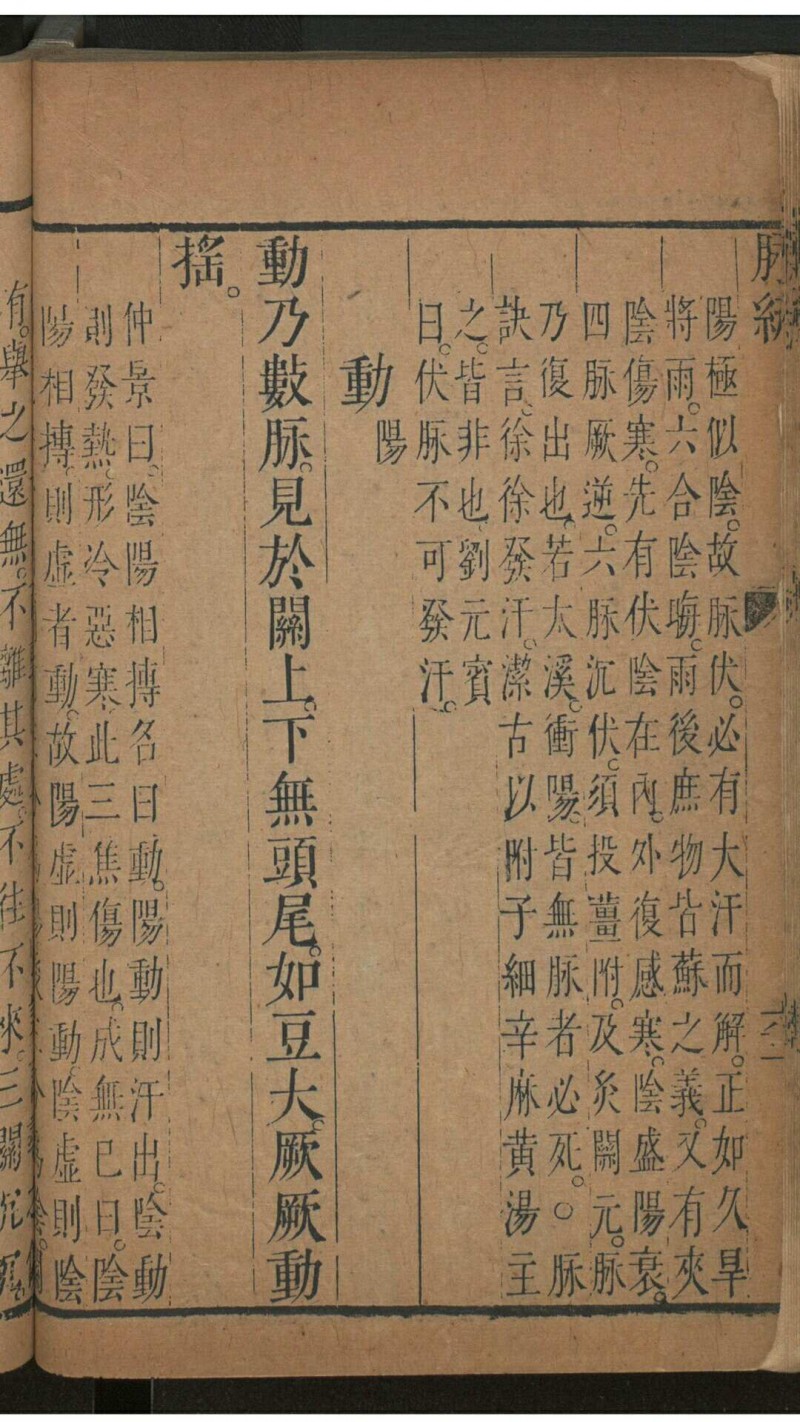 陽極似陰。故脉伏。必有大汗而解。正如久旱
將雨。六合陰晦。雨後庶物皆蘇之義。又有夾
陰傷寒。先有伏陰在內。外復感寒。陰盛陽衰。
四脉厥逆。六脉沉伏。須投薑附。及灸關元。脉
乃復出也。若太溪。衝陽。皆無脉者必死。○脉
訣言。徐徐發汗。潔古以附子細辛麻黄湯主
之。皆非也。劉元賓
曰。伏脉不可發汗。
動陽
動乃數脉。見於關上。下無頭尾。如豆大。厥厥動
搖。
仲景曰。陰陽相搏名曰動。陽動則汗出。陰動
則發熱。形冷惡寒。此三焦傷也。成無已曰。陰
陽相搏。則虛者動。故陽虛則陽動。陰虛則陰
有。舉之還無。不離其處。不往不來。三關